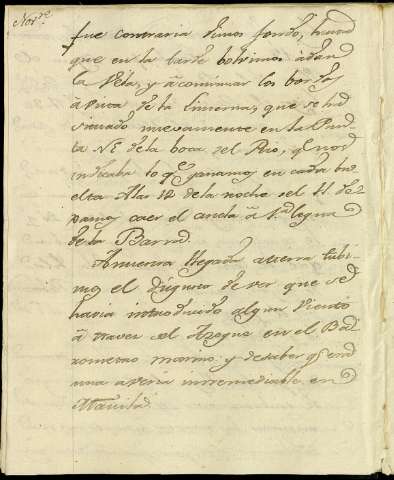 Nov.re
fue contraria dimos fondo, hasta
que en la tarde bolvimos à dar
la Vela, y à continuar los bordos
à vista de la Linterna, que se hà
situado nuevamente en la Pun-
ta NE de la boca del Rio, q.e nos
indicaba lo q.e ganamos en cada bu
elta. A las 12 de la noche del 11 de
xamos caer el ancla à 1.a legua
de la Barra.
A nuestra llegada à tierra tubi-
mos el disgusto de ver que se
havia introducido algun viento
à traves del Azogue en el Ba-
rometro marino; y de saber q.e era
una averia irremediable en
Manila.